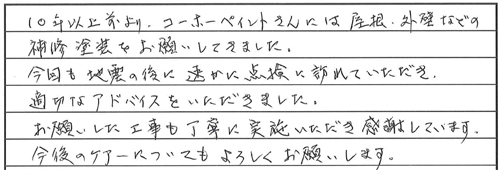 10年以上前より、コーホーペイントさんには屋根・外壁などの
補修塗装をお願いしてきました。
今回も地震の後に速かに点検に訪れていただき、
適切なアドバイスをいただきました。
お願いした工事も丁寧に実施いただき感謝しています。
今後のケアーについてもよろしくお願いします。